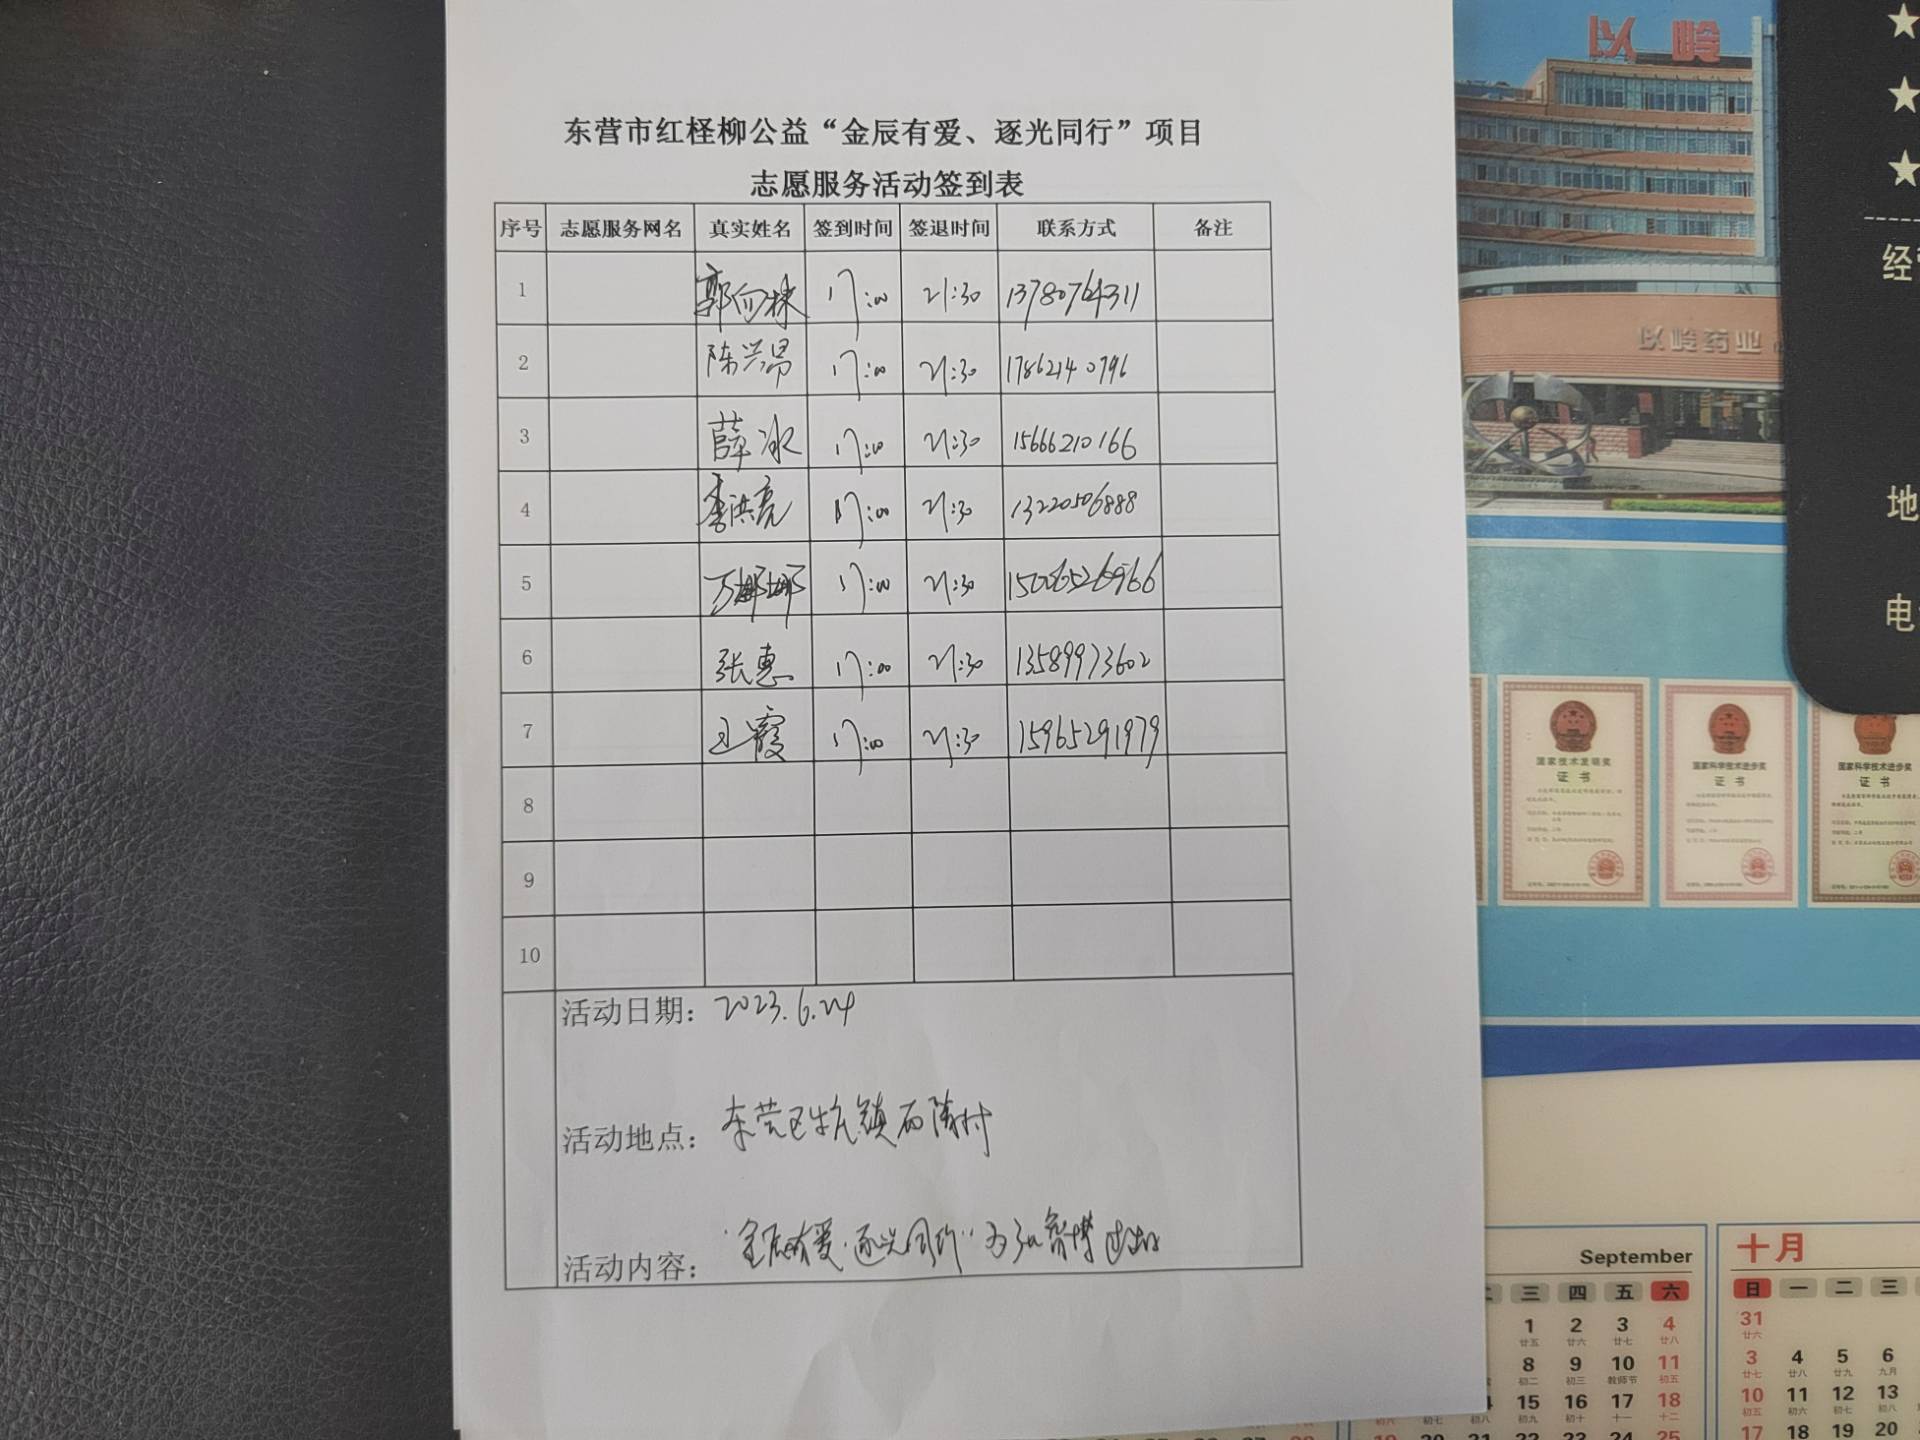 东营市红柽柳公益“金辰有爱、逐光同行”项目
志愿服务活动签到表
序号 志愿服务网名 真实姓名 签到时间 签退时间 联系方式 备注
1 郭向 17:00 21:30 13780764311
2 陈兴昂 17:00 21:30 17862140796
3 薛冰 17:00 21:30 15666210166
4 李洪亮 17:00 21:30 13220506888
5 万娜娜 17:00 21:30 15006526966
6 张惠 17:00 21:30 13589973602
7 王霞 17:00 21:30 15965291979
8
9
10
活动日期：2023.6.24
活动地点：东营区牛庄镇西隋村
活动内容：“金辰有爱·逐光同行”
以岭
以岭药业
★
★
★
经
地
电
国家技术发明奖
证书
国家科学技术进步奖
证书
国家科学技术进步奖
证书
September
三 四 五 六
1 2 3 4
廿五 廿六 廿七 廿八
8 9 10 11
初二 初三 教师节 初五
15 16 17 18
初九 初十 十一 十二
19 20 21 22 23 24 25
十月
日 一 二 三
31
廿六
3 4 5 6
廿七 廿八 廿九 九月
10 11 12 13
初五 初六 初七 初八
17 18 19 20